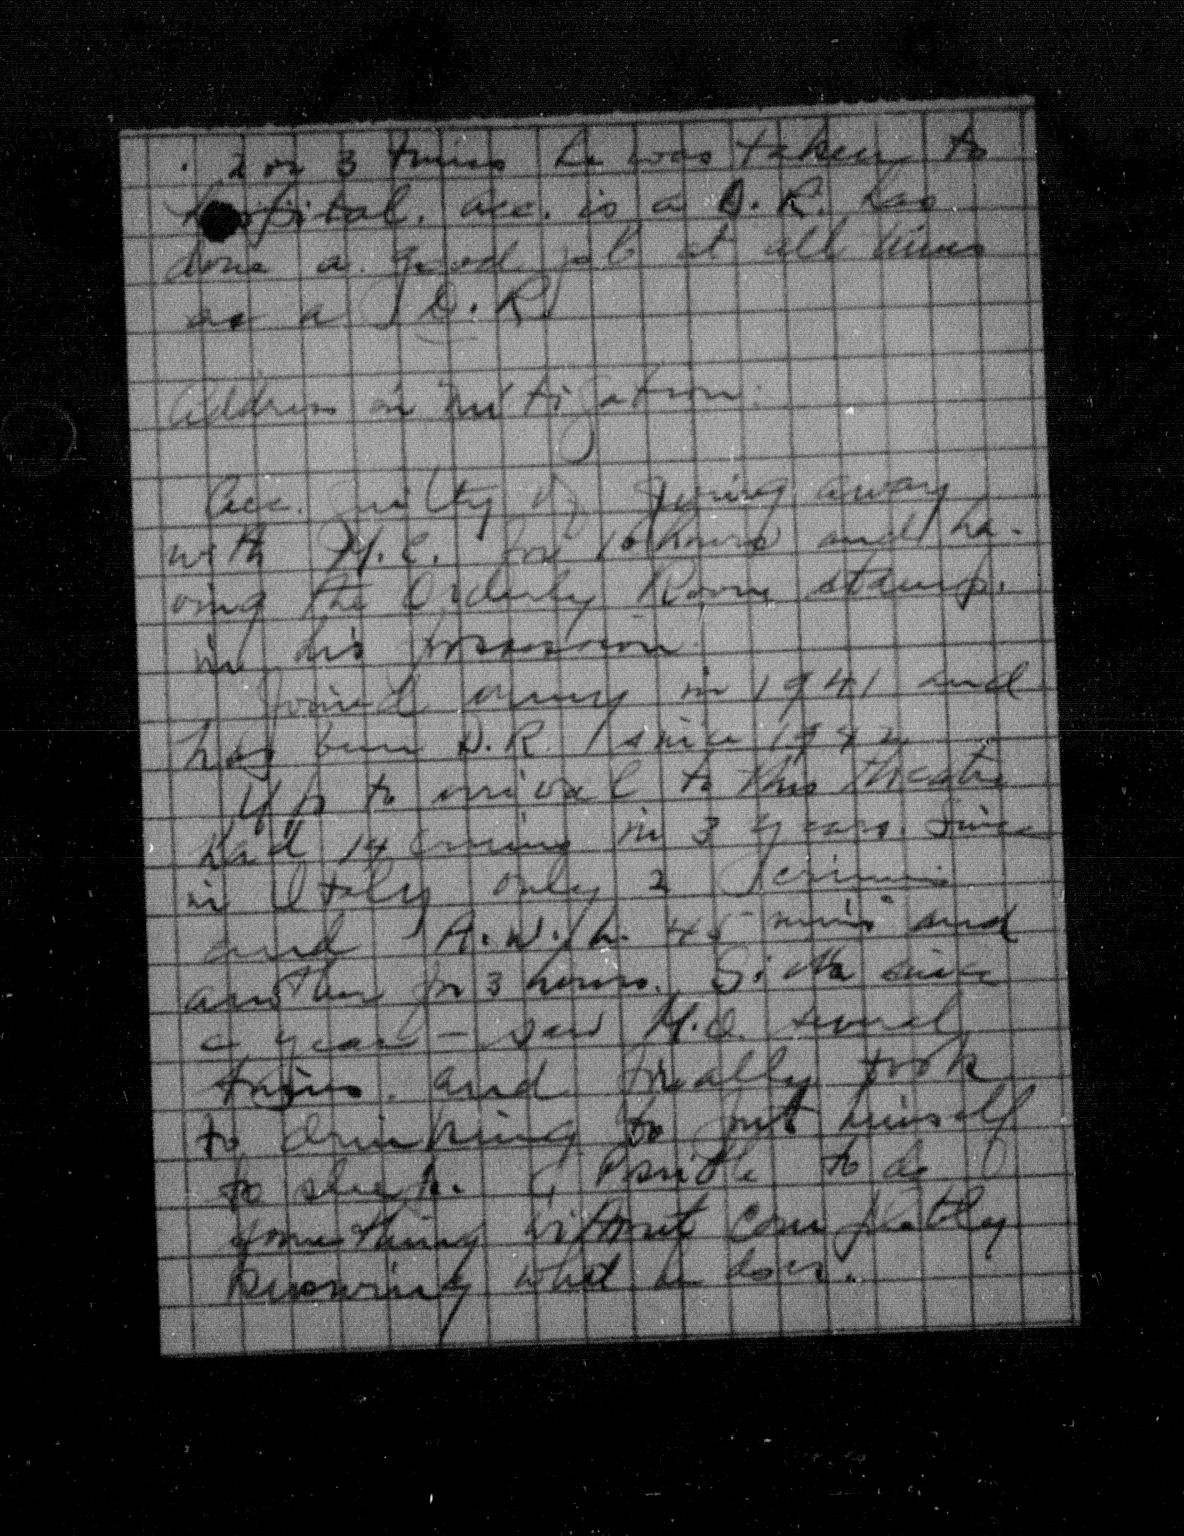 2 or 3 times he was taken to
hospital. Acc. is a D.R. has
done a good job at all times
as a D.R.
Address in Mitigation:
Acc. guilty of going away
with M.C. for 10 hours and ha-
ving the Orderly Room stamp.
in his possession.
Joined army in 1941 and
has been D.R. since 1942
Up to arrival to this theatre
had 14 crimes in 3 years. Since
in Italy only 2 crimes
and A.W.L. 45 mins and
another for 3 hours. Sick since
a year - saw M.O. several
times. and finally took
to drinking to put himself
to sleep. Possible to do
something without completly
knowing what he does.